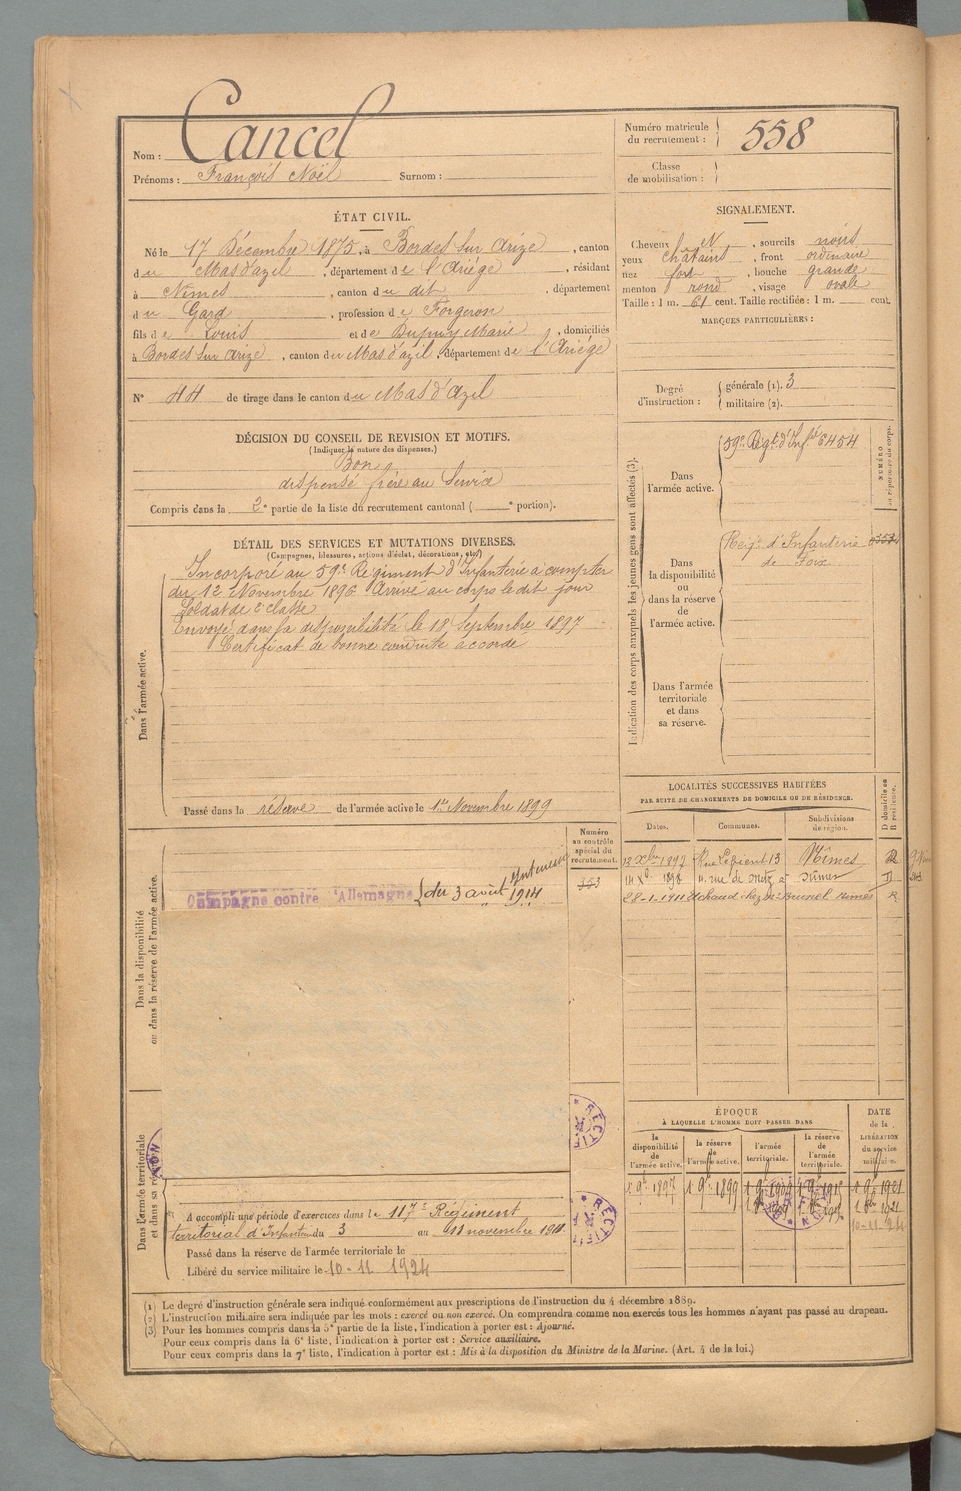 Nom : Cancel
Prénoms : François Noël Surnom :
Numéro matricule du recrutement : 558
Classe de mobilisation :
ÉTAT CIVIL.
Né le 17 Décembre 1875, à Bordes sur Arize, canton
du Mas d'azil, département de l'Ariége, résidant
à Nîmes, canton du dit, département
du Gard, profession de Forgeron
fils de Louis et de Dupuy Marie, domiciliés
à Bordes sur Arize, canton du Mas d'azil, département de l'Ariége
N° 44 de tirage dans le canton du Mas d'Azil
DÉCISION DU CONSEIL DE REVISION ET MOTIFS.
(Indiquer la nature des dispenses.)
Bon
dispensé frère au Service
Compris dans la 2e partie de la liste du recrutement cantonal ( e portion).
DÉTAIL DES SERVICES ET MUTATIONS DIVERSES.
(Campagnes, blessures, actions d'éclat, décorations, etc.)
Dans l'armée active.
Incorporé au 59e Régiment d'Infanterie à compter
du 12 Novembre 1896 Arrivé au corps le dit jour
Soldat de 2e classe
Envoyé dans la disponibilité le 18 Septembre 1897
Certificat de bonne conduite accordé
Passé dans la réserve de l'armée active le 1er Novembre 1899
Dans la disponibilité
ou dans la réserve de l'armée active.
Numéro
au contrôle
spécial du
recrutement.
Campagne contre l'Allemagne du 3 août 1914
Dans l'armée territoriale
et dans sa réserve
A accompli une période d'exercices dans le 117e Régiment
territorial d'Infanterie du 3 au 11 novembre 1911
Passé dans la réserve de l'armée territoriale le
Libéré du service militaire le 10-11 1924
SIGNALEMENT.
Cheveux N, sourcils noirs
yeux châtains, front ordinaire
nez fort, bouche grande
menton rond, visage ovale
Taille : 1 m. 61 cent. Taille rectifiée : 1 m. cent.
MARQUES PARTICULIÈRES :
Degré
d'instruction :
générale (1). 3
militaire (2).
Indication des corps auxquels les jeunes gens sont affectés (3).
NUMÉRO
au répertoire du corps.
Dans
l'armée active.
59e Régt d'Inf.ie 6454
Dans
la disponibilité
ou
dans la réserve
de
l'armée active.
Reg.t d'Infanterie
de Foix
Dans l'armée
territoriale
et dans
sa réserve.
LOCALITÉS SUCCESSIVES HABITÉES
PAR SUITE DE CHANGEMENTS DE DOMICILE OU DE RÉSIDENCE.
D domicile ou
R résidence.
Dates. Communes. Subdivisions
de région.
13 Xbre 1897 Nîmes R
1898 rue de Metz Nîmes D
28-1-1911 chez Mr Brunel Nimes R
ÉPOQUE
À LAQUELLE L'HOMME DOIT PASSER DANS
DATE
de la
LIBÉRATION
du service
militaire.
la
disponibilité
de
l'armée active.
la réserve
de
l'armée active.
l'armée
territoriale.
la réserve
de
l'armée
territoriale.
1 9bre 1897 1 9bre 1899 1 9bre 1909 1 9bre 1915 1 9bre 1921
10-11-24
(1) Le degré d'instruction générale sera indiqué conformément aux prescriptions de l'instruction du 4 décembre 1889.
(2) L'instruction militaire sera indiquée par les mots : exercé ou non exercé. On comprendra comme non exercés tous les hommes n'ayant pas passé au drapeau.
(3) Pour les hommes compris dans la 5e partie de la liste, l'indication à porter est : Ajourné.
Pour ceux compris dans la 6e liste, l'indication à porter est : Service auxiliaire.
Pour ceux compris dans la 7e liste, l'indication à porter est : Mis à la disposition du Ministre de la Marine. (Art. 4 de la loi.)